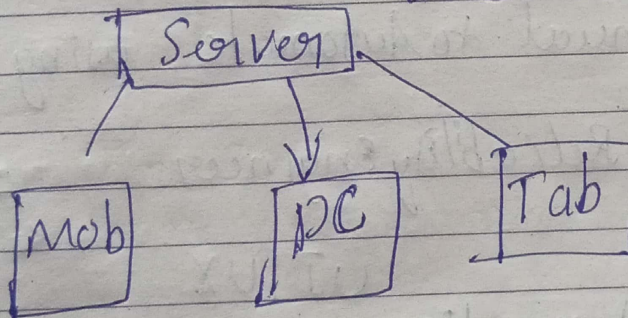 Server
Mob
PC
Tab